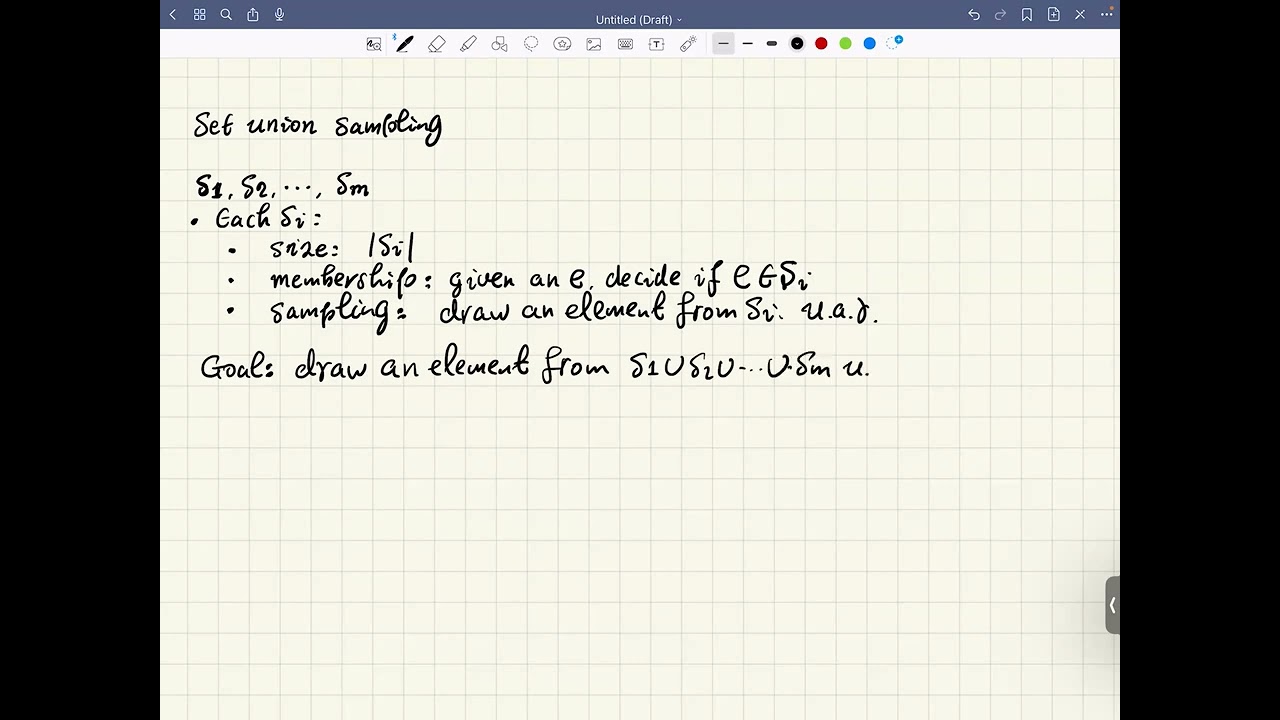 Untitled (Draft)
Set union sampling
S1, S2, ..., Sm
• Each Si:
• size: |Si|
• membership: given an e, decide if e ∈ Si
• sampling: draw an element from Si. u.a.r.
Goal: draw an element from S1 ∪ S2 ∪ ... ∪ Sm u.